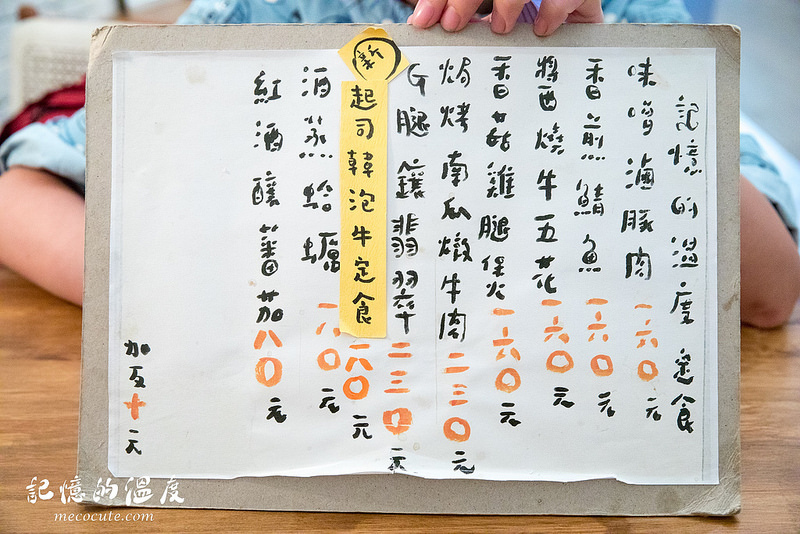 記憶的溫度 定食
味噌滷豚肉 一六〇元
香煎鯖魚 一六〇元
醬燒牛五花 一六〇元
香菇雞腿煲 一六〇元
焗烤南瓜燉牛肉 二三〇元
G腿鑲翡翠 二三〇元
新 起司韓泡牛定食 一八〇元
酒蒸蛤蠣 一八〇元
紅酒釀蕃茄 八〇元
加 十元
記憶的溫度
mecocute.com